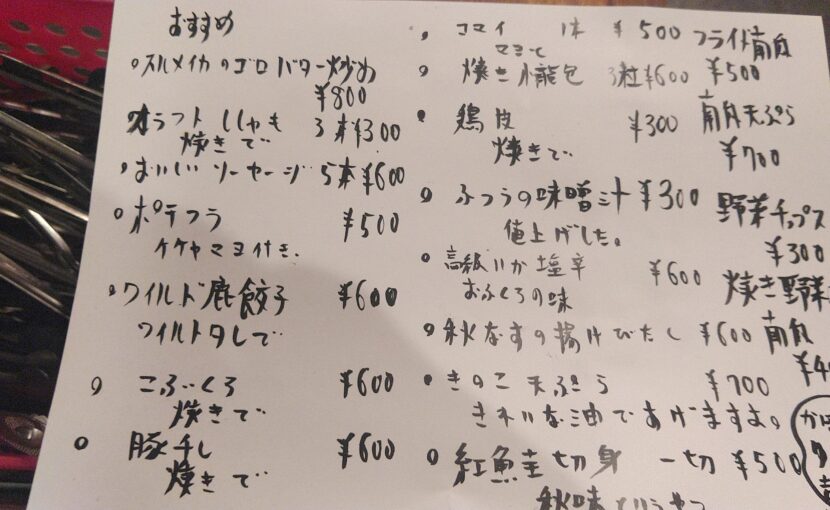 おすすめ
スルメイカのゴロバター炒め
¥800
クラフトししゃも 3本¥300
焼きで
おいしいソーセージ 5本¥600
ポテフラ ¥500
ケケヤマヨ付き、
ワイルド鹿餃子 ¥600
ワイルドタレで
こぶくろ ¥600
焼きで
豚千し ¥600
焼きで
コマイ 1本 ¥500
マヨで
焼き小龍包 3粒¥600
鶏皮 ¥300
焼きで
ふつうの味噌汁 ¥300
値上げした。
高級いか塩辛 ¥600
おふくろの味
秋なすの揚げびたし ¥600
きのこ天ぷら ¥700
きれいな油であげますよ。
紅鮭切身 一切¥500
フライド南瓜
¥500
南瓜天ぷら
¥700
野菜チップス
¥300
焼き野菜
南瓜